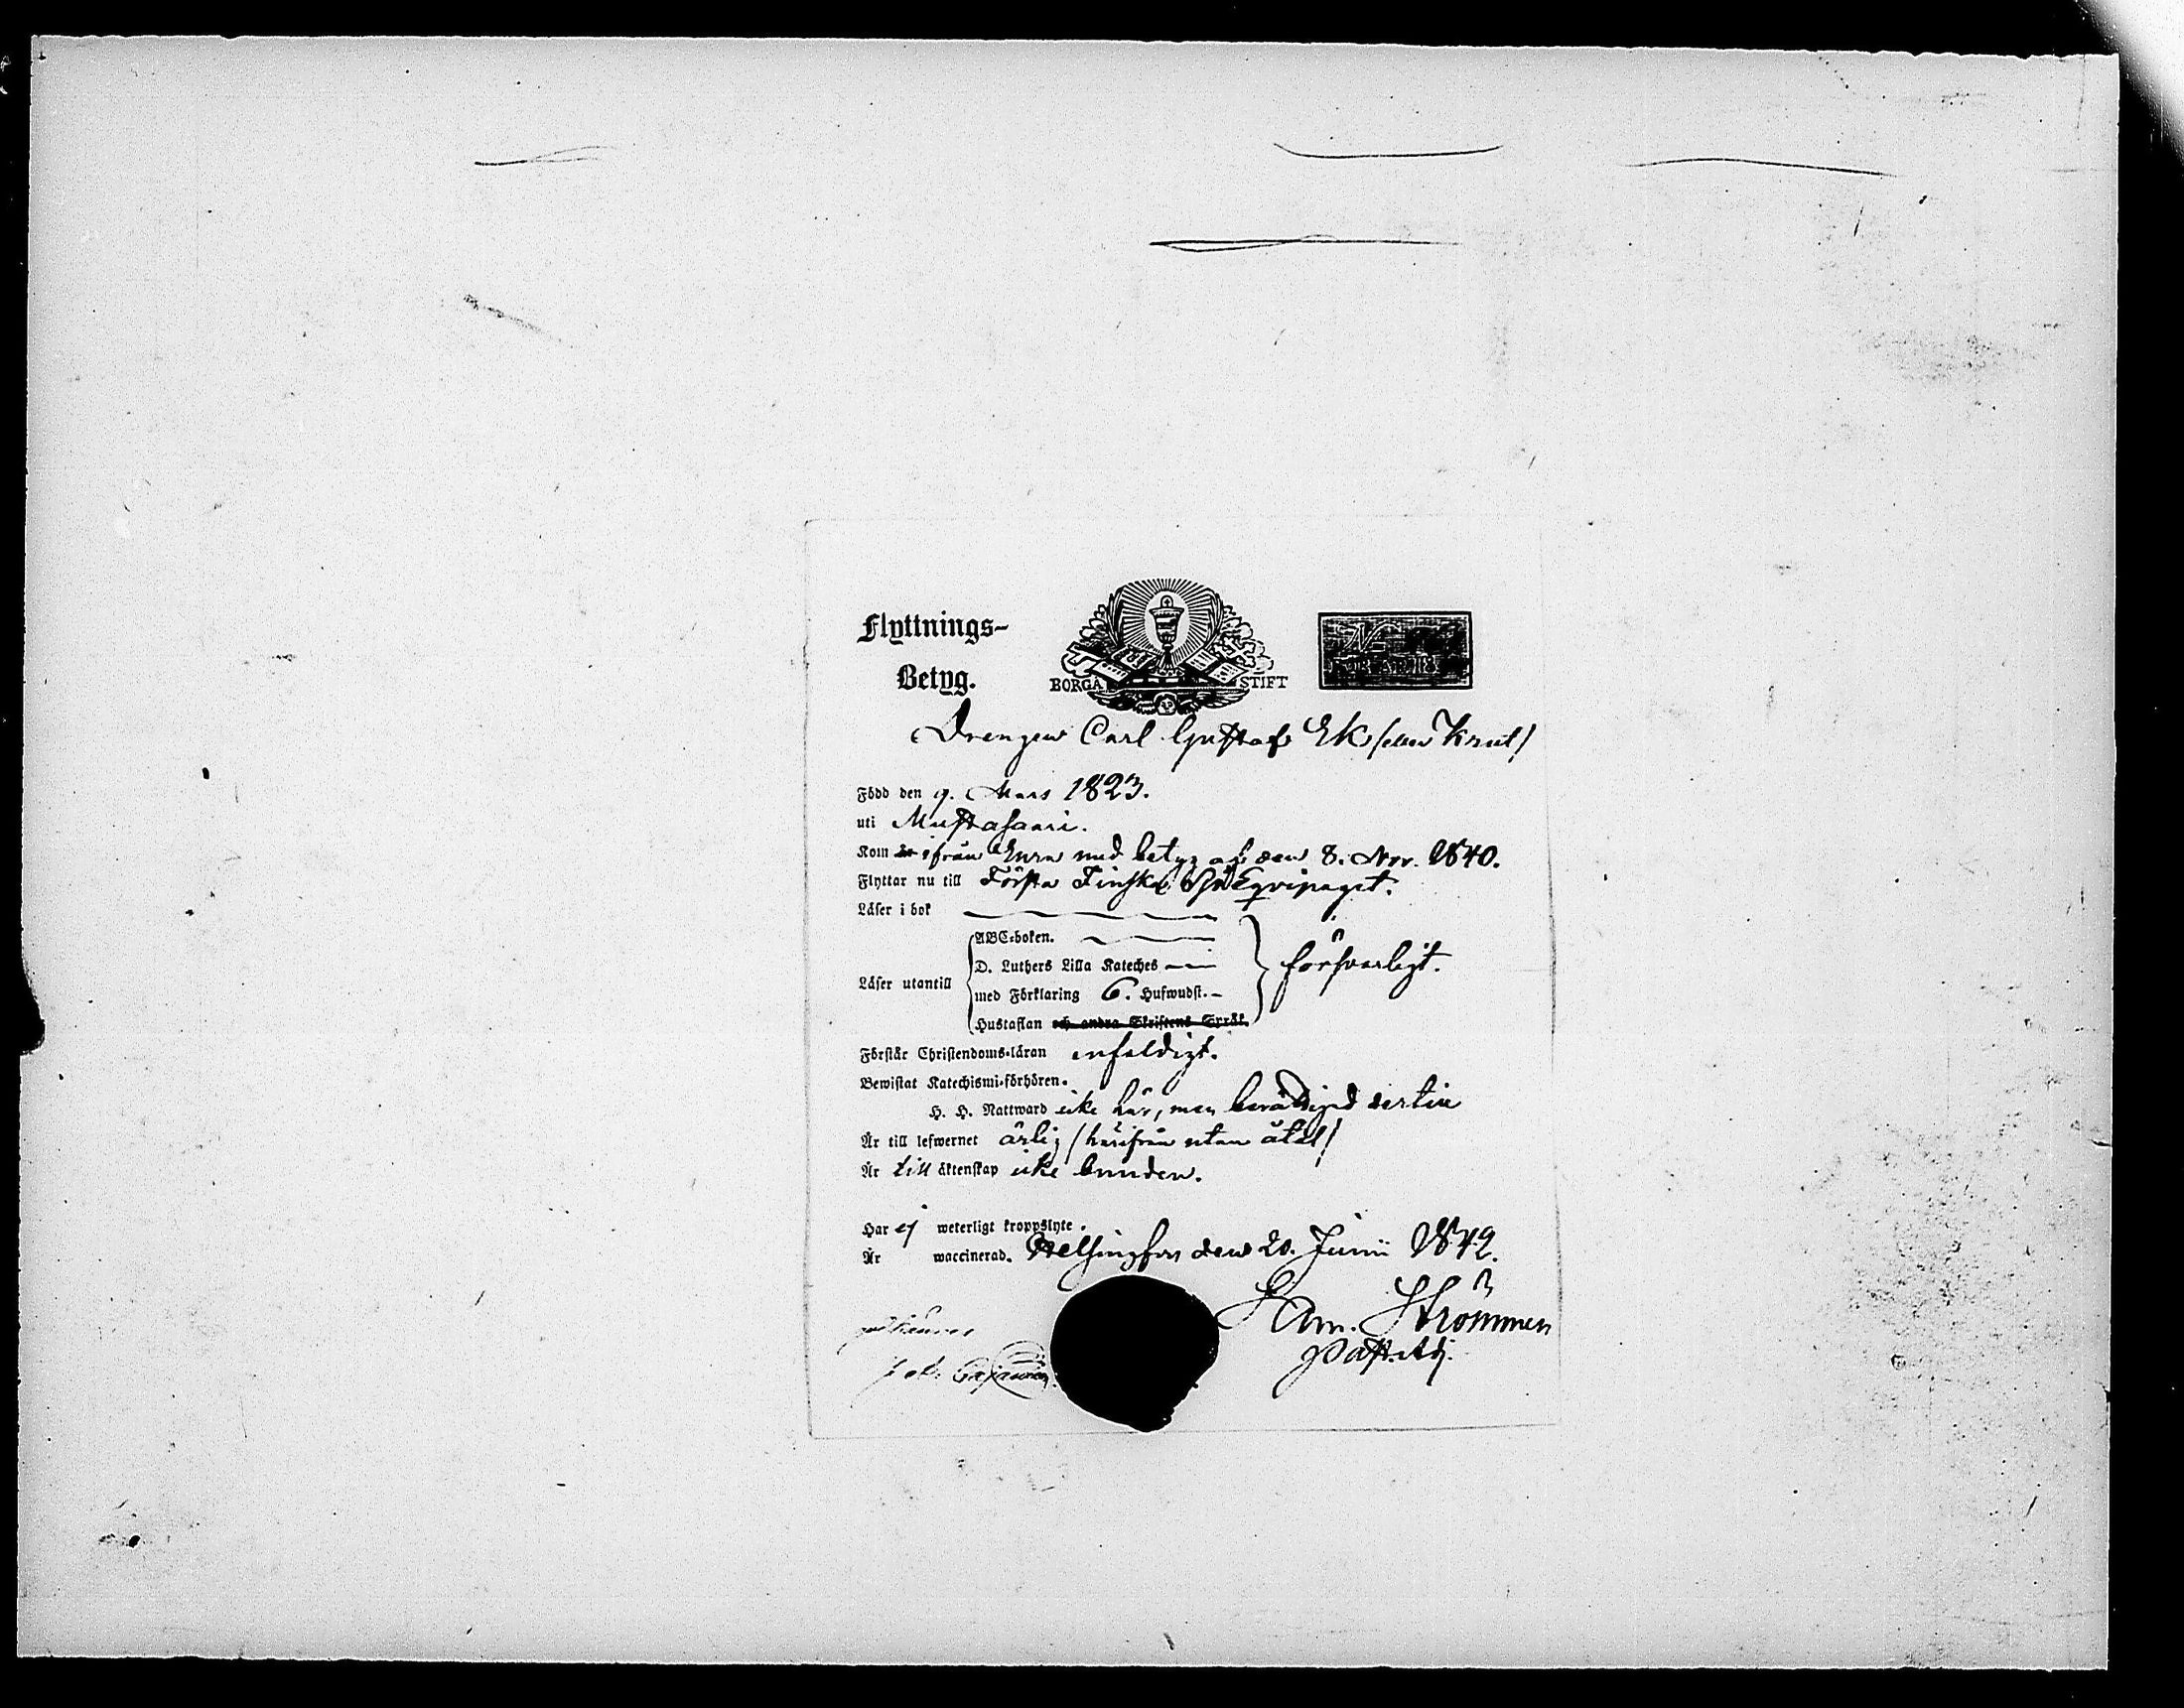 Flyttnings-
Betyg.
BORGÅ STIFT
Drengen Carl Gustaf Ek (eller Krut)
Född den 9. Mars 1823.
uti Mustasaari.
Kom ifrån med betyg af den 8. Nov. 1840.
Flyttar nu till Första Finska Sjö Eqvipaget.
Läser i bok
Läser utantill
ABC-boken.
D. Luthers Lilla Kateches
med Förklaring 6. Hufwudst.
Hustaflan och andra Skriftens Språk.
försvarligt.
Förstår Christendoms-läran enfaldigt.
Bewistat Katechismi-förhören.
H. H. Nattward icke här, men berättigad dertill
Är till lefwernet ärlig (härifrån utan åtal)
Är till äktenskap icke bunden.
Har ej weterligt kroppslyte.
Är waccinerad. Helsingfors den 20. Junii 1842.
Sam. Strömmer
Past. Adj.